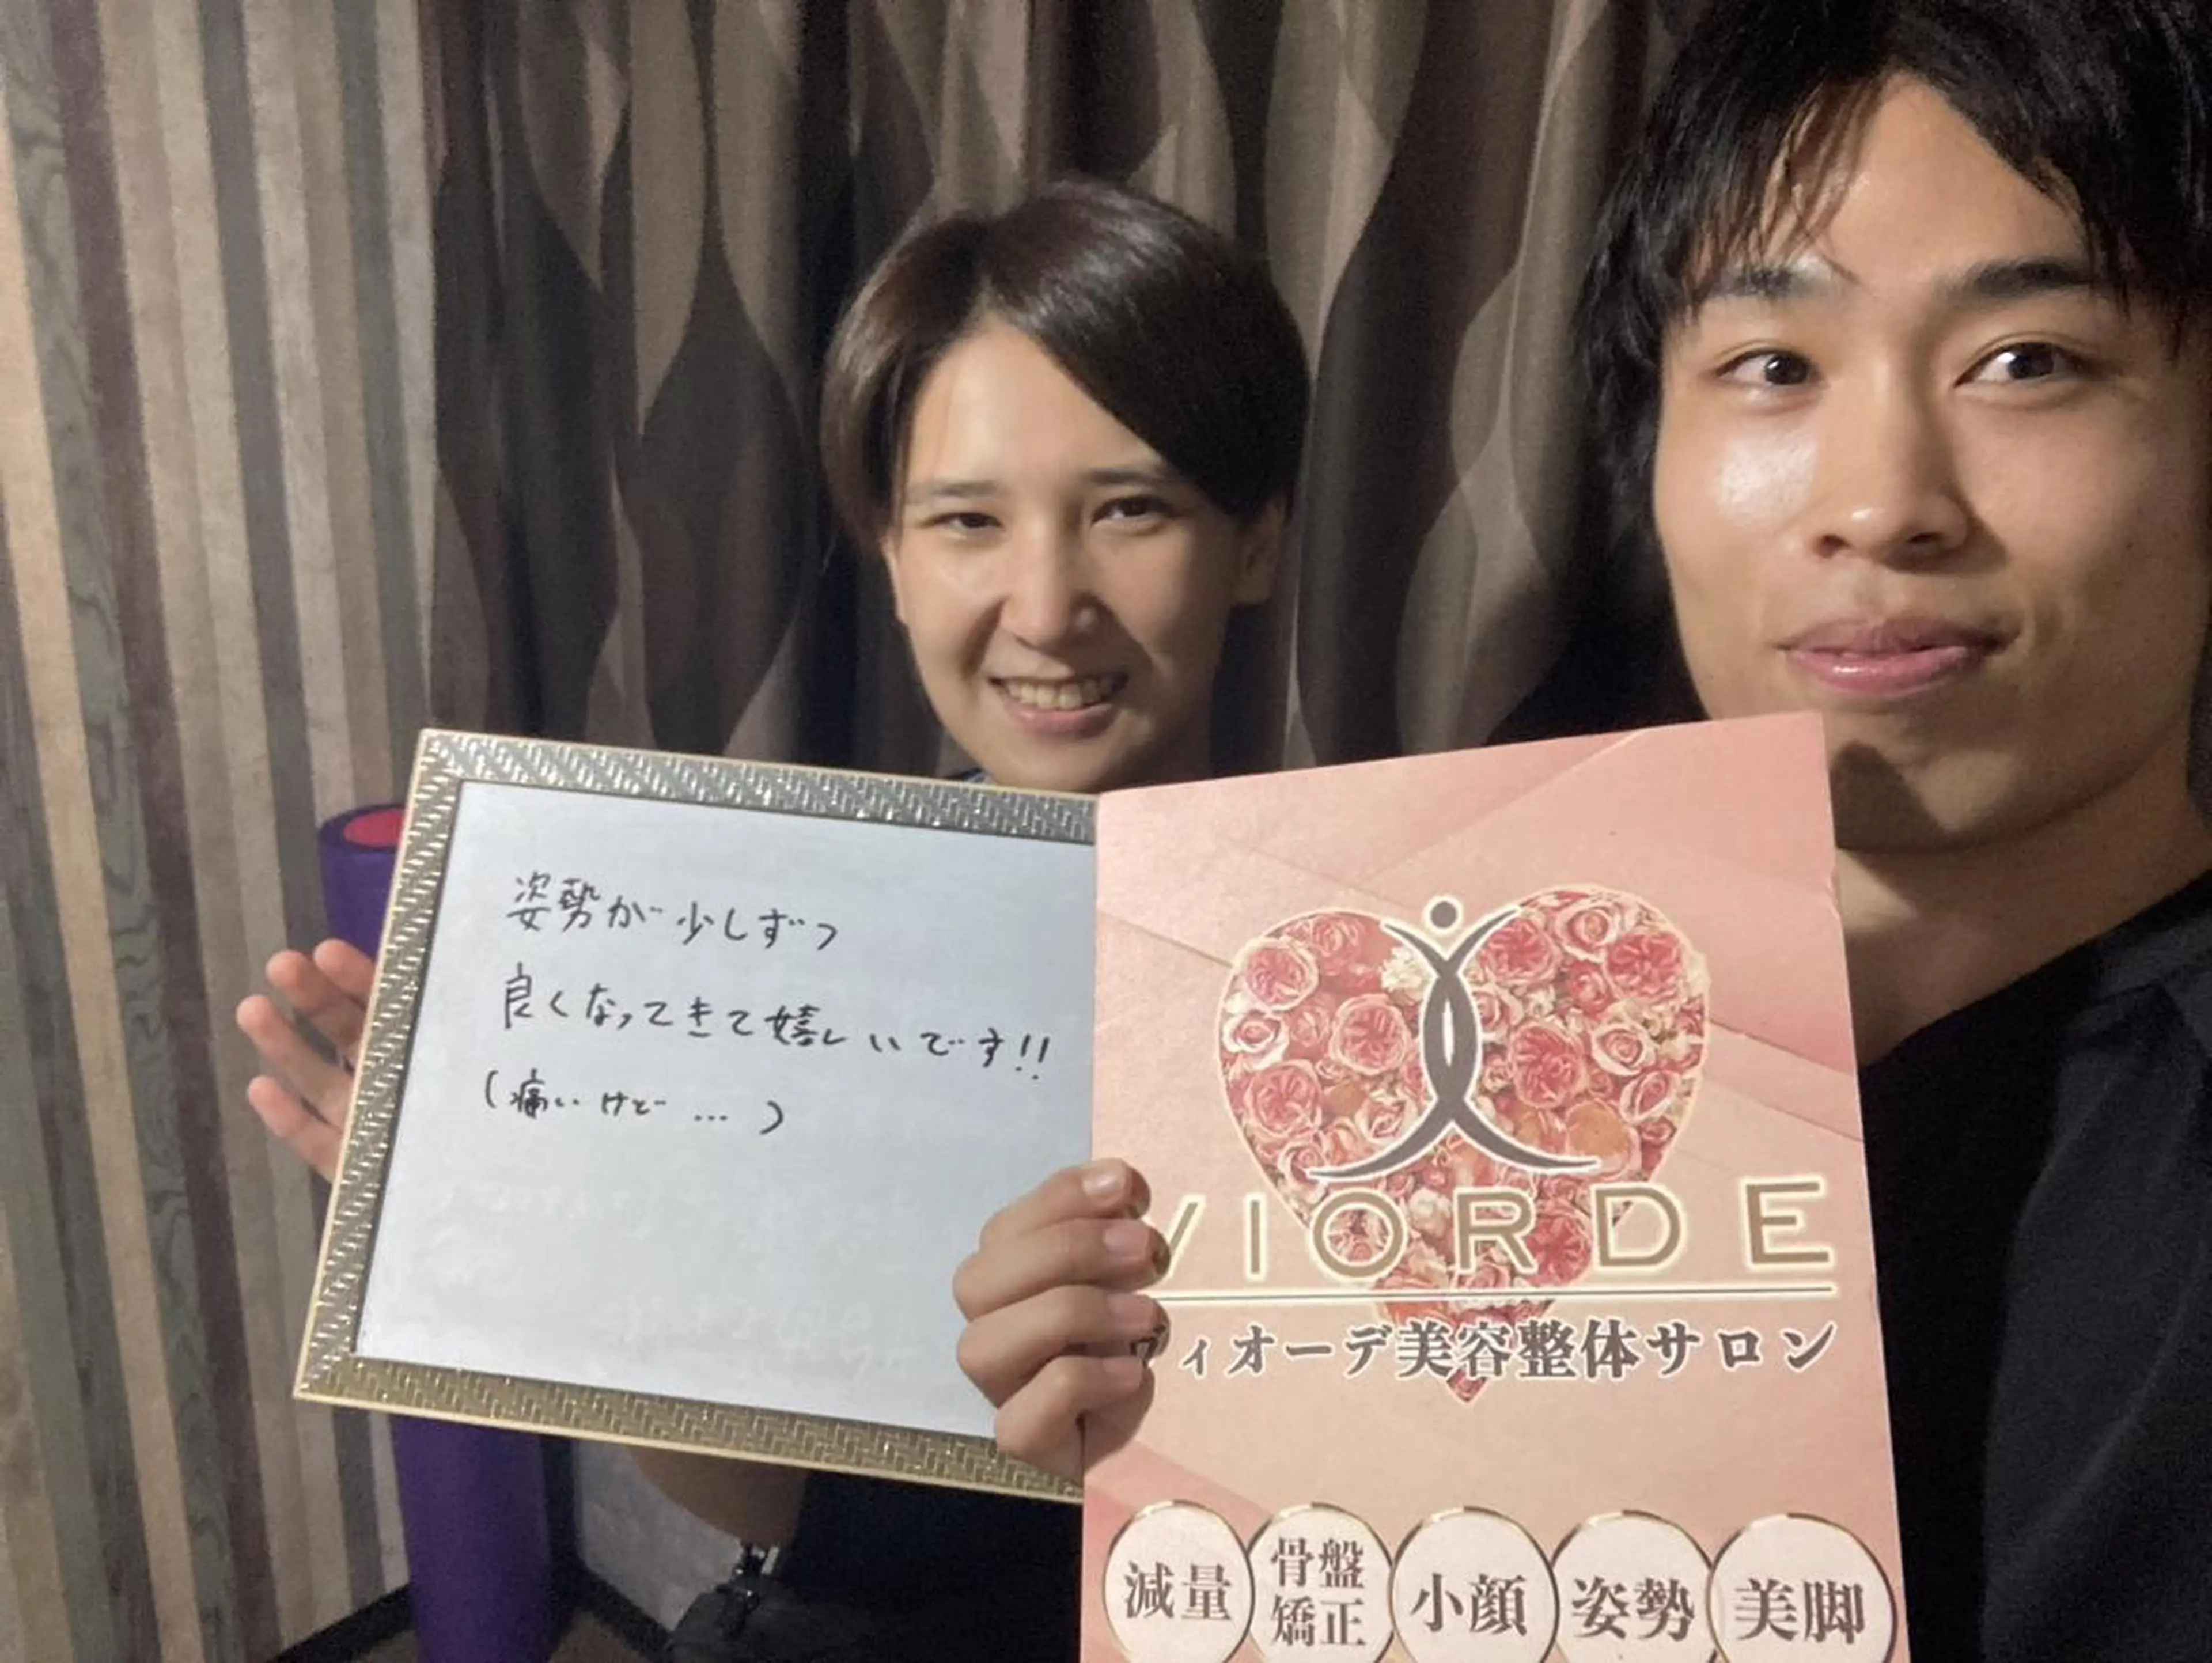 姿勢が少しずつ
良くなってきて嬉しいです!!
(痛いけど…)
VIORDE
ヴィオーデ美容整体サロン
減量
骨盤
矯正
小顔
姿勢
美脚